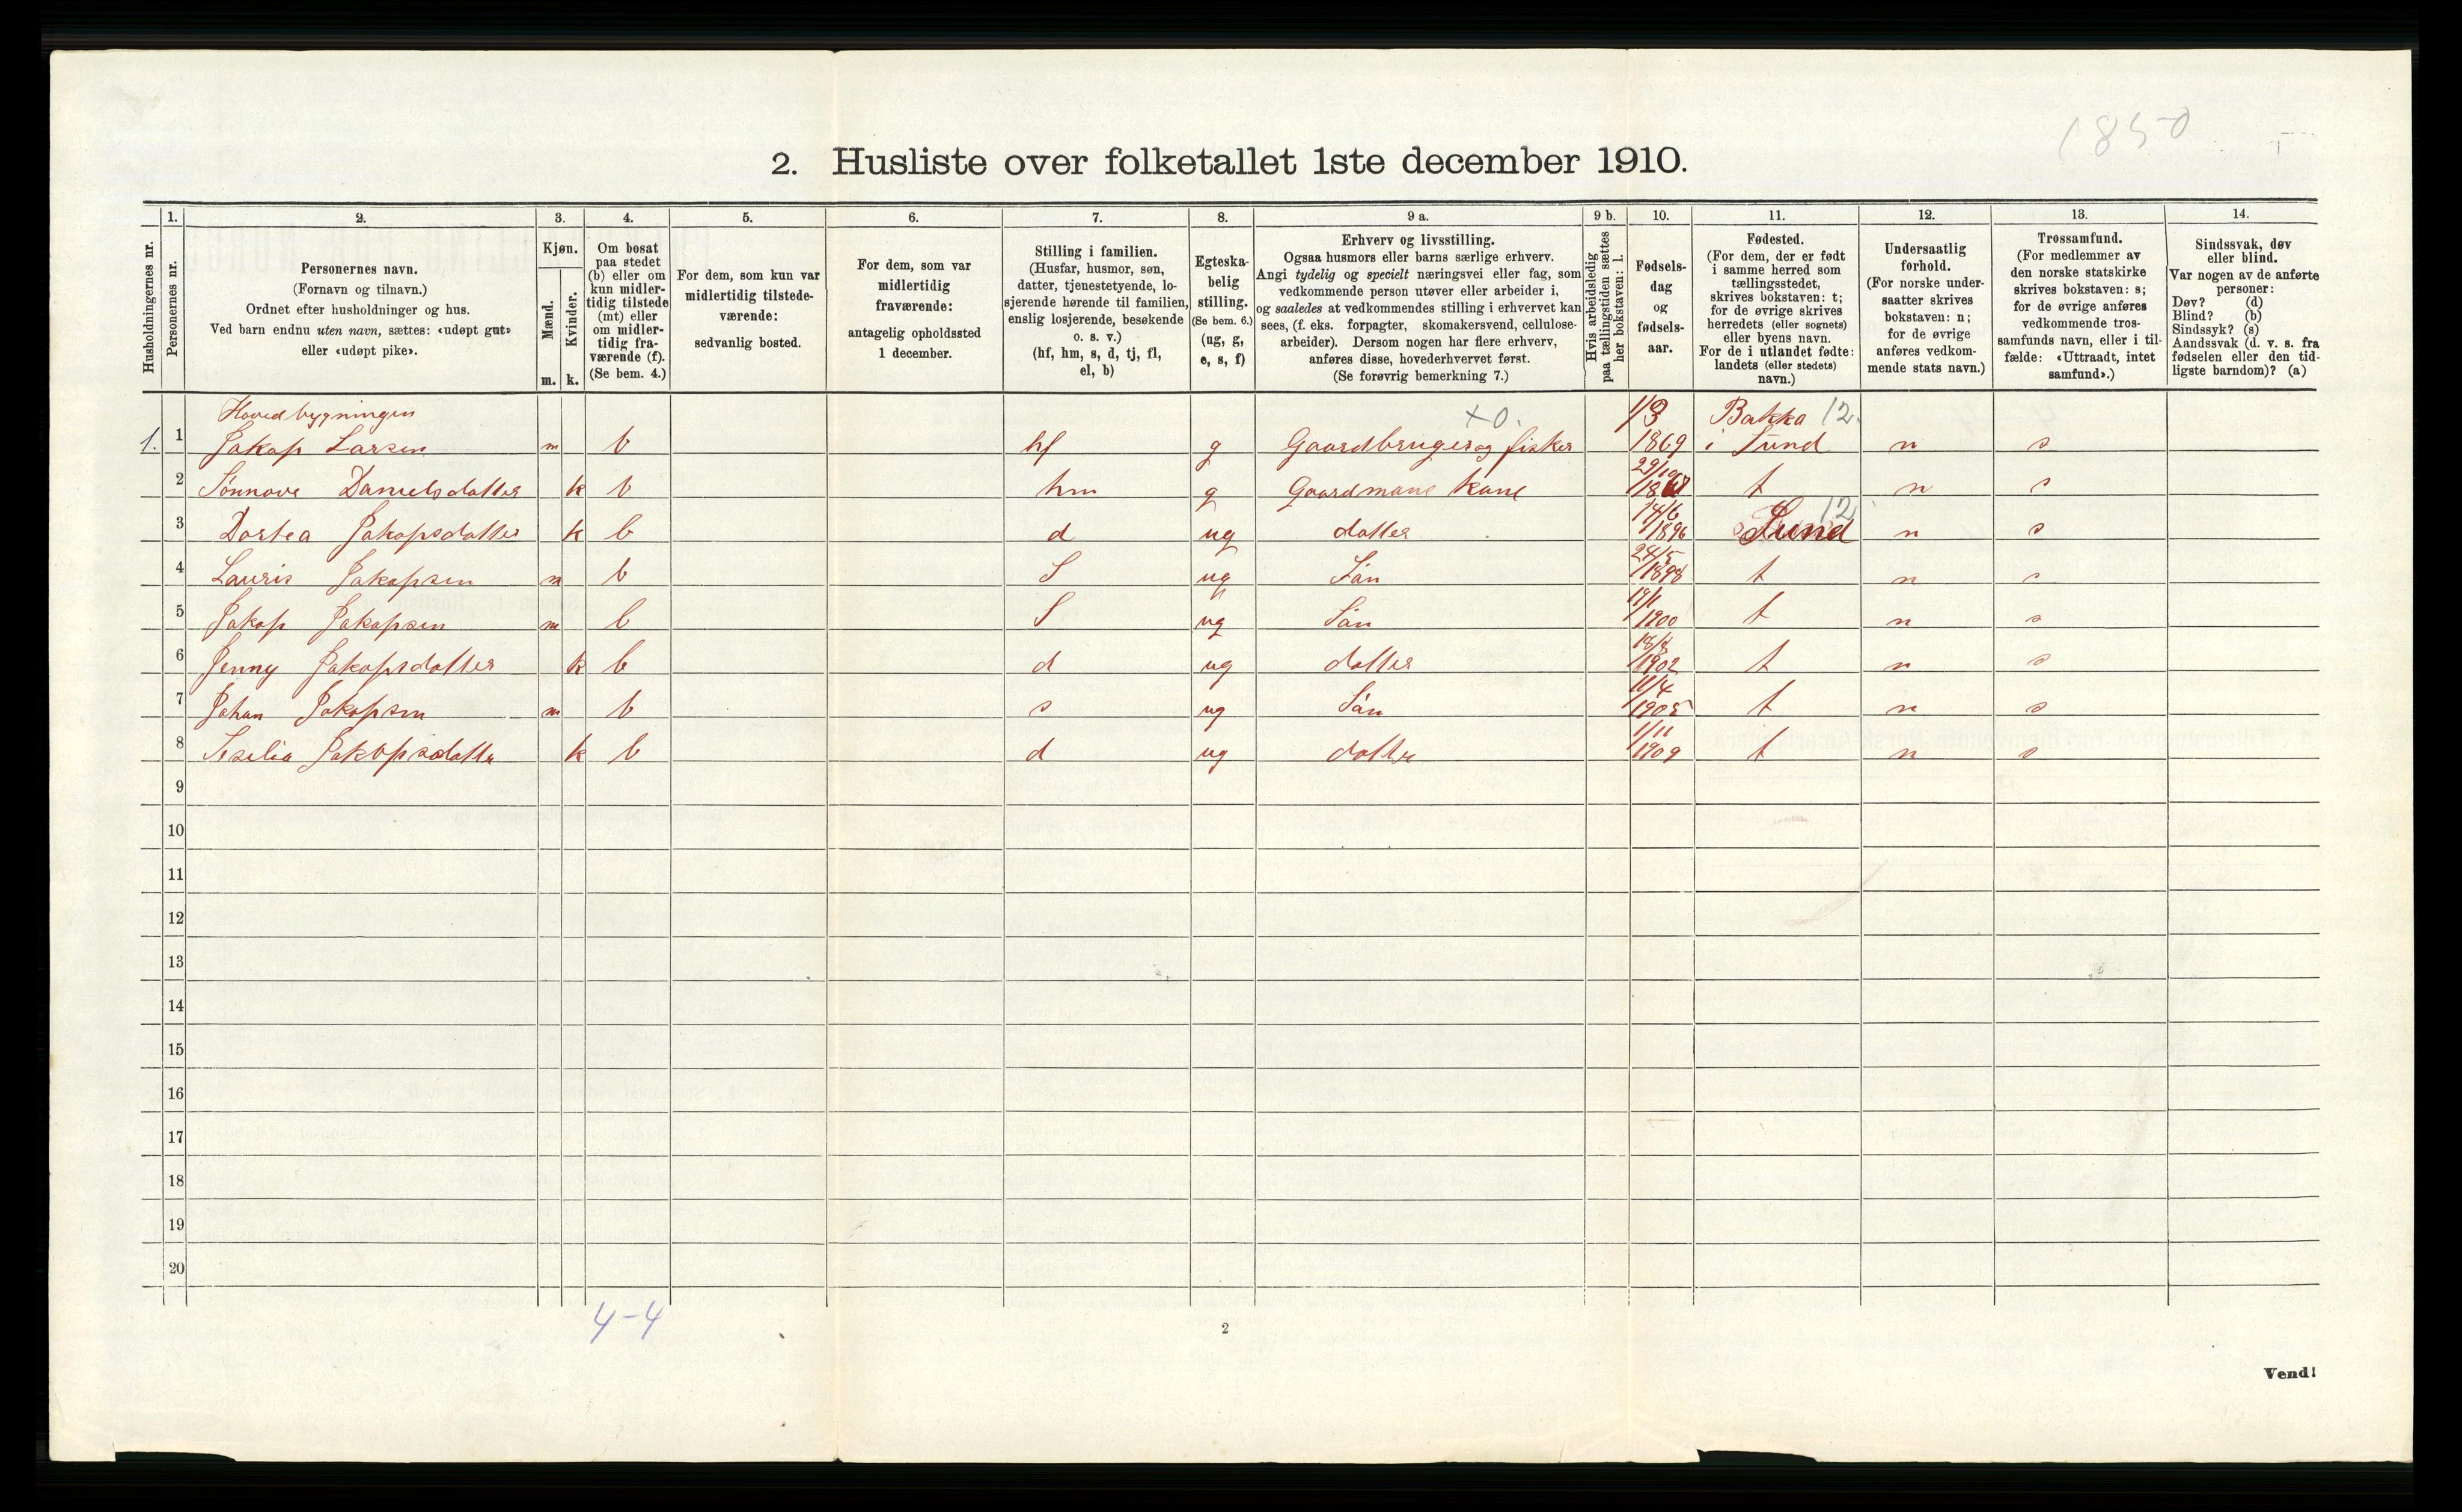 1850
2. Husliste over folketallet 1ste december 1910.
Husholdningernes nr.
1.
Personernes nr.
2.
Personernes navn.
(Fornavn og tilnavn.)
Ordnet efter husholdninger og hus.
Ved barn endnu uten navn, sættes: «udøpt gut»
eller «udøpt pike».
3.
Kjøn.
Mænd.
Kvinder.
m. k.
4.
Om bosat
paa stedet
(b) eller om
kun midler-
tidig tilstede
(mt) eller
om midler-
tidig fra-
værende (f).
(Se bem. 4.)
5.
For dem, som kun var
midlertidig tilstede-
værende:
sedvanlig bosted.
6.
For dem, som var
midlertidig
fraværende:
antagelig opholdssted
1 december.
7.
Stilling i familien.
(Husfar, husmor, søn,
datter, tjenestetyende, lo-
sjerende hørende til familien,
enslig losjerende, besøkende
o. s. v.)
(hf, hm, s, d, tj, fl,
el, b)
8.
Egteska-
belig
stilling.
(Se bem. 6.)
(ug, g,
e, s, f)
9 a.
Erhverv og livsstilling.
Ogsaa husmors eller barns særlige erhverv.
Angi tydelig og specielt næringsvei eller fag, som
vedkommende person utøver eller arbeider i,
og saaledes at vedkommendes stilling i erhvervet kan
sees, (f. eks. forpagter, skomakersvend, cellulose-
arbeider). Dersom nogen har flere erhverv,
anføres disse, hovederhvervet først.
(Se forøvrig bemerkning 7.)
9 b.
Hvis arbeidsledig
paa tællingstiden sættes
her bokstaven: l.
10.
Fødsels-
dag
og
fødsels-
aar.
11.
Fødested.
(For dem, der er født
i samme herred som
tællingsstedet,
skrives bokstaven: t;
for de øvrige skrives
herredets (eller sognets)
eller byens navn.
For de i utlandet fødte:
landets (eller stedets)
navn.)
12.
Undersaatlig
forhold.
(For norske under-
saatter skrives
bokstaven: n;
for de øvrige
anføres vedkom-
mende stats navn.)
13.
Trossamfund.
(For medlemmer av
den norske statskirke
skrives bokstaven: s;
for de øvrige anføres
vedkommende tros-
samfunds navn, eller i til-
fælde: «Uttraadt, intet
samfund».)
14.
Sindssvak, døv
eller blind.
Var nogen av de anførte
personer:
Døv? (d)
Blind? (b)
Sindssyk? (s)
Aandssvak (d. v. s. fra
fødselen eller den tid-
ligste barndom)? (a)
Hovedbygningen +0. 1/3 Bakka 12.
1. 1 Jakop Larsen m b hf g Gaardbruger og fisker 1869 i Sund n s
2 Sønnove Danielsdatter k b hm g Gaardmans kone 29/10 t n s
3 Dortea Jakopsdatter k b d ug datter 14/6 1896 Sund 12 n s
4 Lauris Jakopsen m b S ug Søn 24/5 1898 t n s
5 Jakop Jakopsen m b S ug Søn 1900 t n s
6 Jenny Jakopsdatter k b d ug datter 1902 t n s
7 Johan Jakopsen m b s ug Søn 11/4 1905 t n s
8 Seselia Jakopsdatter k b d ug datter 1/11 1909 t n s
9
10
11
12
13
14
15
16
17
18
19
20
4-4
2
Vend!